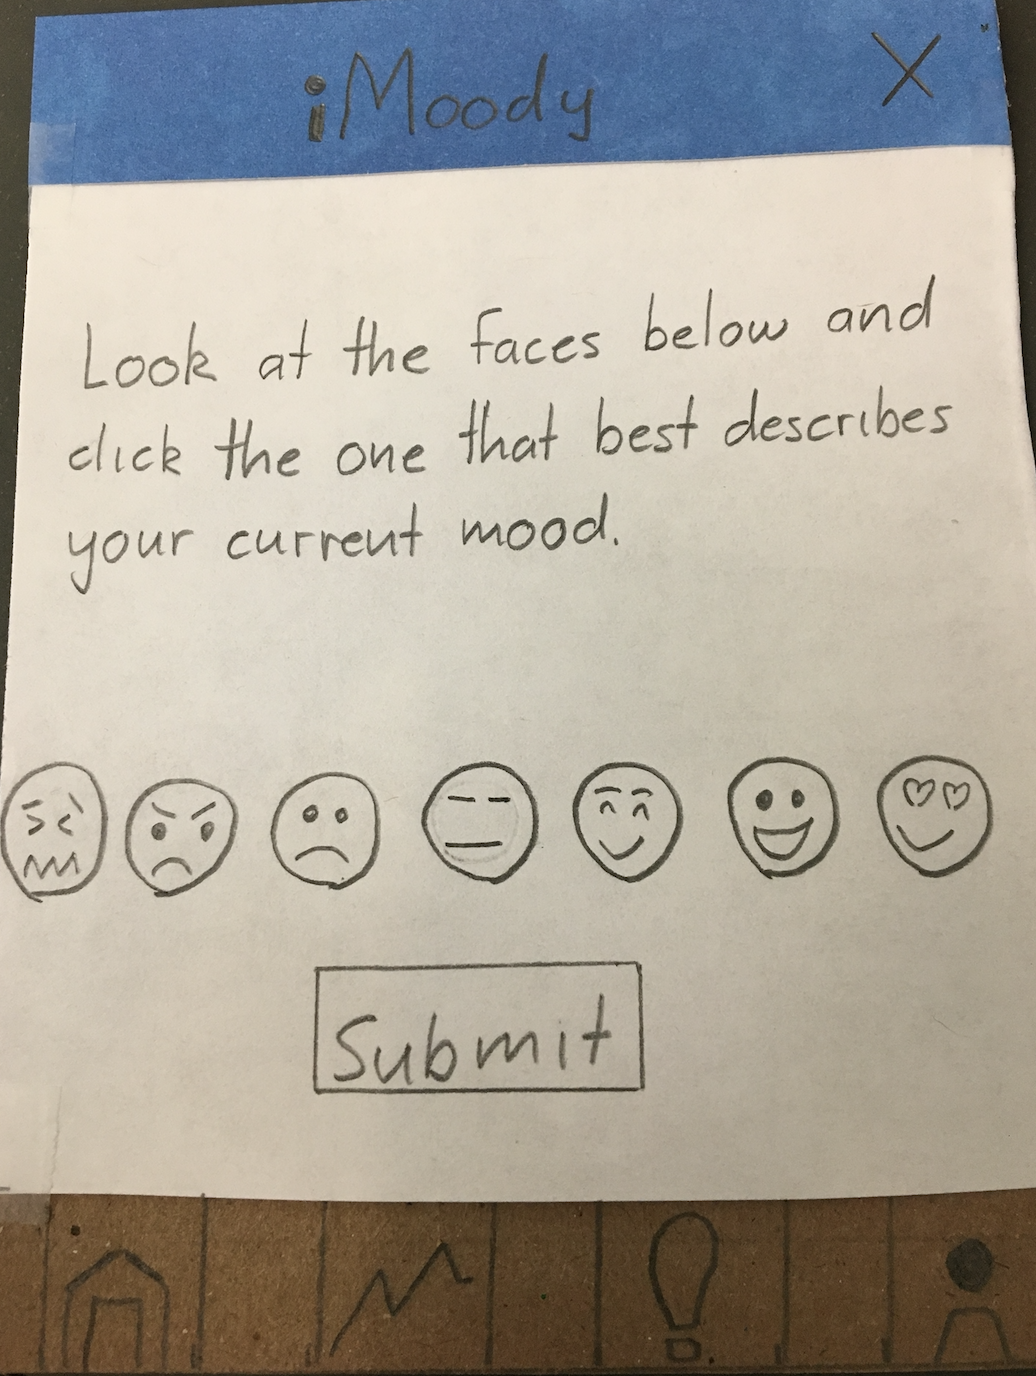 iMoody X
Look at the faces below and
click the one that best describes
your current mood.
Submit